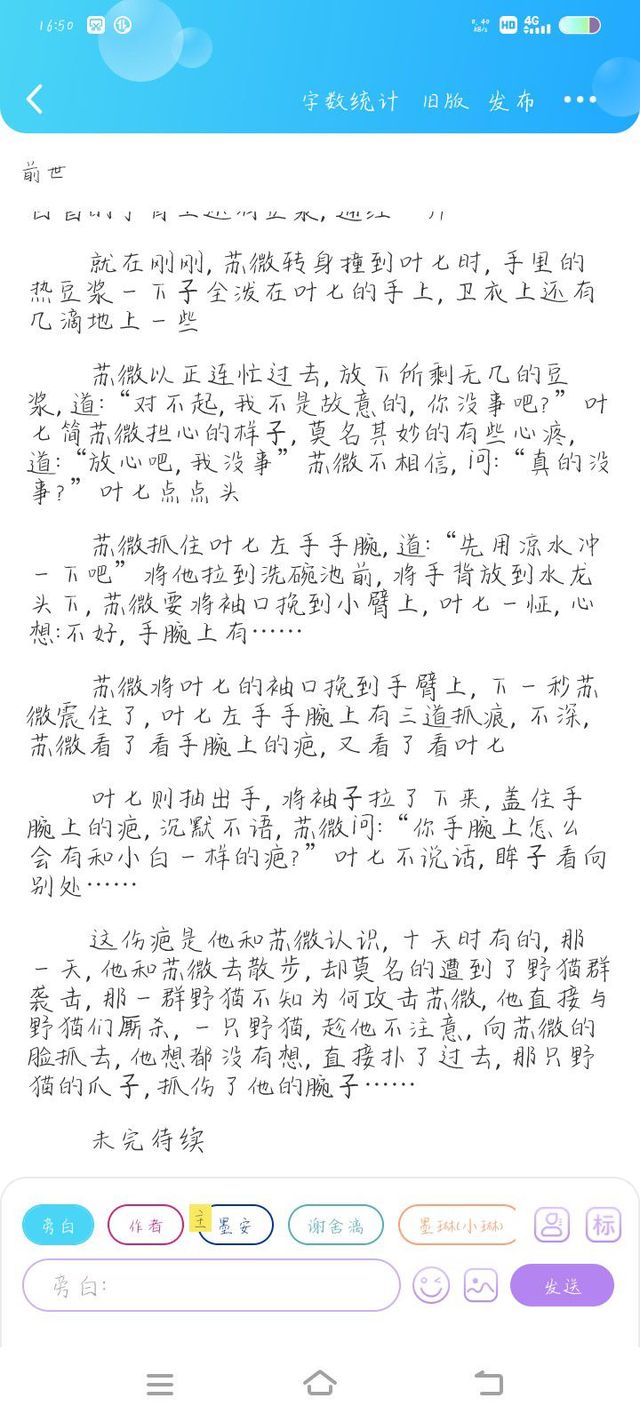 16:50
0.40
KB/s
HD
4G
字数统计 旧版 发布
前世
就在刚刚,苏微转身撞到叶七时,手里的
热豆浆一下子全泼在叶七的手上,卫衣上还有
几滴地上一些
苏微以正连忙过去,放下所剩无几的豆
浆,道:“对不起,我不是故意的,你没事吧?” 叶
七简苏微担心的样子,莫名其妙的有些心疼,
道:“放心吧,我没事” 苏微不相信,问:“真的没
事?” 叶七点点头
苏微抓住叶七左手手腕,道:“先用凉水冲
一下吧” 将他拉到洗碗池前,将手背放到水龙
头下,苏微要将袖口挽到小臂上,叶七一怔,心
想:不好,手腕上有……
苏微将叶七的袖口挽到手臂上,下一秒苏
微震住了,叶七左手手腕上有三道抓痕,不深,
苏微看了看手腕上的疤,又看了看叶七
叶七则抽出手,将袖子拉了下来,盖住手
腕上的疤,沉默不语,苏微问:“你手腕上怎么
会有和小白一样的疤?” 叶七不说话,眸子看向
别处……
这伤疤是他和苏微认识,十天时有的,那
一天,他和苏微去散步,却莫名的遭到了野猫群
袭击,那一群野猫不知为何攻击苏微,他直接与
野猫们厮杀,一只野猫,趁他不注意,向苏微的
脸抓去,他想都没有想,直接扑了过去,那只野
猫的爪子,抓伤了他的腕子……
未完待续
旁白 作者 主 墨安 谢舍漓 墨琳(小琳) 标
旁白: 发送